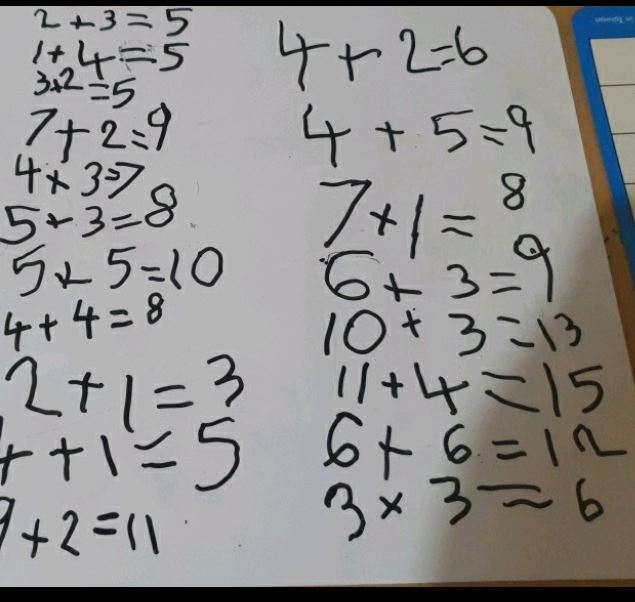 2 + 3 = 5
1 + 4 = 5
3+2 = 5
7 + 2 = 9
4 + 3 = 7
5 + 3 = 8
5 + 5 = 10
4 + 4 = 8
2 + 1 = 3
4 + 1 = 5
9 + 2 = 11
4 + 2 = 6
4 + 5 = 9
7 + 1 = 8
6 + 3 = 9
10 + 3 = 13
11 + 4 = 15
6 + 6 = 12
3 × 3 = 6